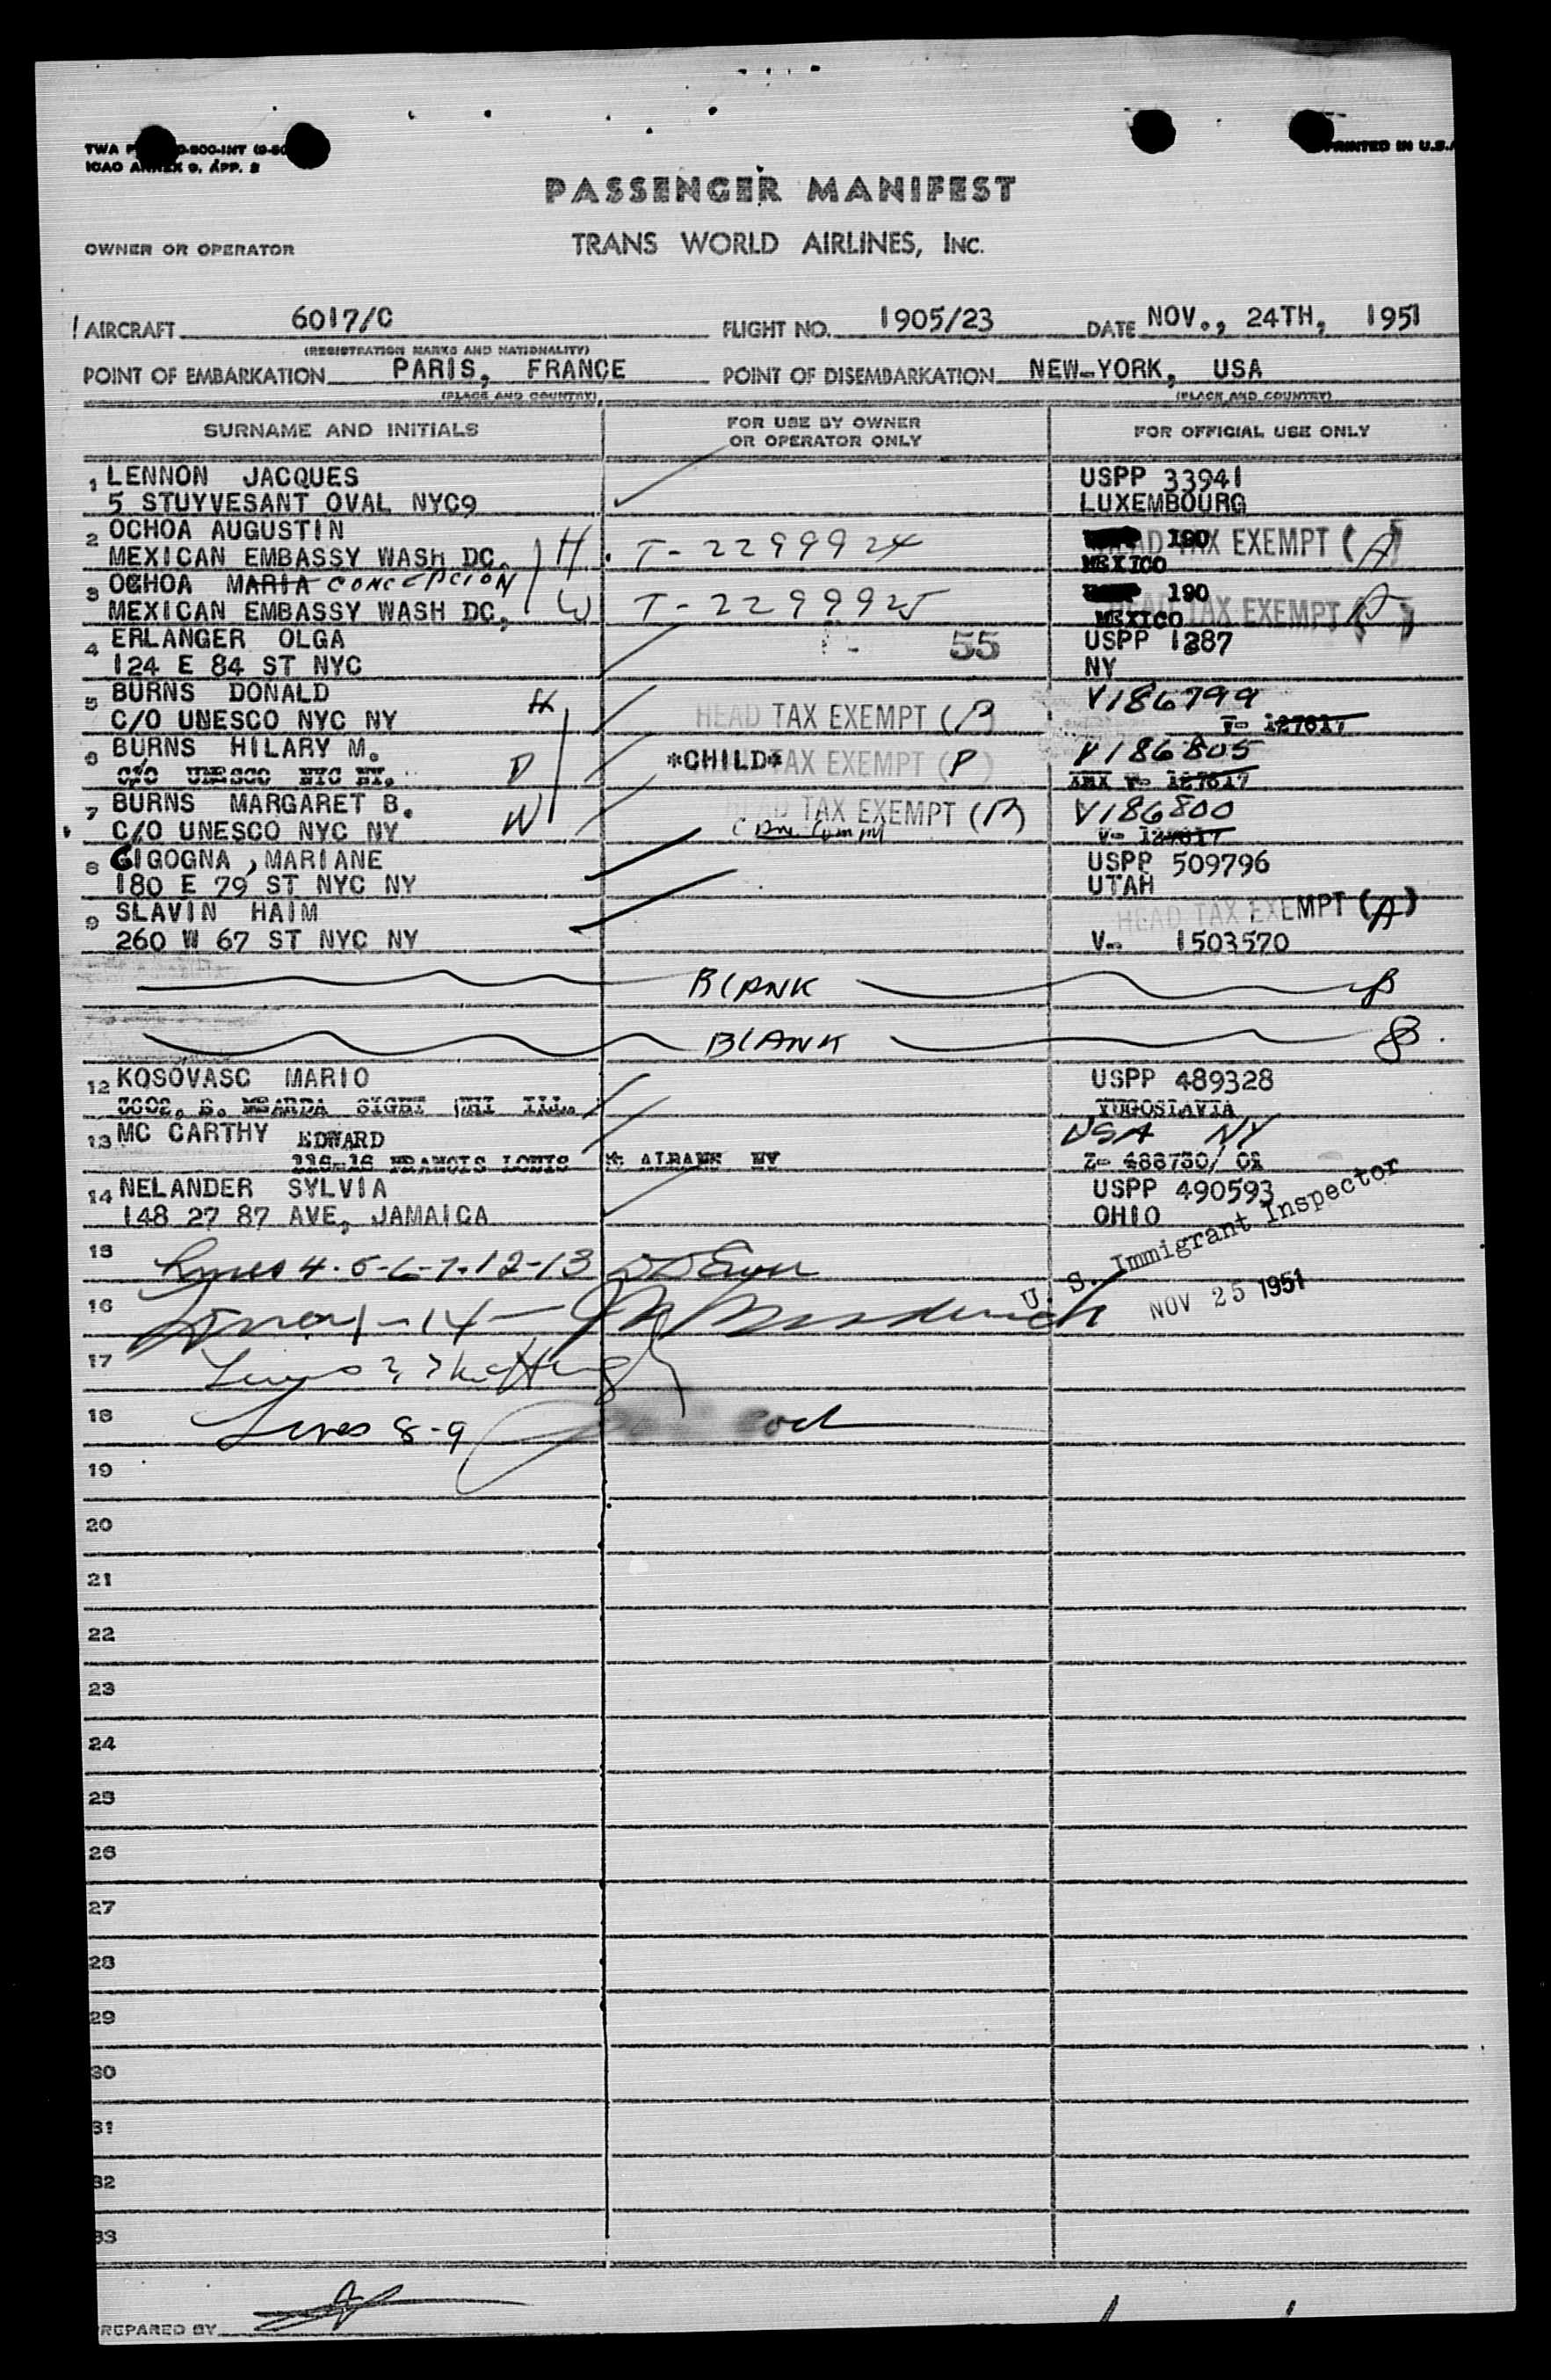 ICAO ANNEX 9, APP. 2
PRINTED IN U.S.A
PASSENGER MANIFEST
OWNER OR OPERATOR TRANS WORLD AIRLINES, INC.
AIRCRAFT 6017/C FLIGHT NO. 1905/23 DATE NOV., 24TH, 1951
(REGISTRATION MARKS AND NATIONALITY)
POINT OF EMBARKATION PARIS, FRANCE POINT OF DISEMBARKATION NEW-YORK, USA
(PLACE AND COUNTRY) (PLACE AND COUNTRY)
SURNAME AND INITIALS FOR USE BY OWNER OR OPERATOR ONLY FOR OFFICIAL USE ONLY
1 LENNON JACQUES USPP 33941
5 STUYVESANT OVAL NYC9 LUXEMBOURG
2 OCHOA AUGUSTIN 190 HEAD TAX EXEMPT (A)
MEXICAN EMBASSY WASH DC. H. T-2299924 MEXICO
3 OCHOA MARIA CONCEPCION 190
MEXICAN EMBASSY WASH DC, W T-2299925 MEXICO HEAD TAX EXEMPT (A)
4 ERLANGER OLGA 55 USPP 1287
124 E 84 ST NYC NY
5 BURNS DONALD H V186799
C/O UNESCO NYC NY HEAD TAX EXEMPT (P) V- 127617
6 BURNS HILARY M. *CHILD* HEAD TAX EXEMPT (P) V186805
C/O UNESCO NYC NY. D V- 127617
7 BURNS MARGARET B. HEAD TAX EXEMPT (P) V186800
C/O UNESCO NYC NY W V- 127617
8 CIGOGNA, MARIANE USPP 509796
180 E 79 ST NYC NY UTAH
9 SLAVIN HAIM HEAD TAX EXEMPT (A)
260 W 67 ST NYC NY V- 1503570
BLANK
BLANK
12 KOSOVASC MARIO USPP 489328
ILL. YUGOSLAVIA
13 MC CARTHY EDWARD USA NY
116-16 FRANCIS LOUIS * ALBANS NY Z- 488730/
14 NELANDER SYLVIA USPP 490593
148 27 87 AVE, JAMAICA OHIO
U. S. Immigrant Inspector
15 Lines 4-5-6-7-12-13
16 NOV 25 1951
17 Lines
18 Lines 8-9
19
20
21
22
23
24
25
26
27
28
29
30
31
32
33
PREPARED BY